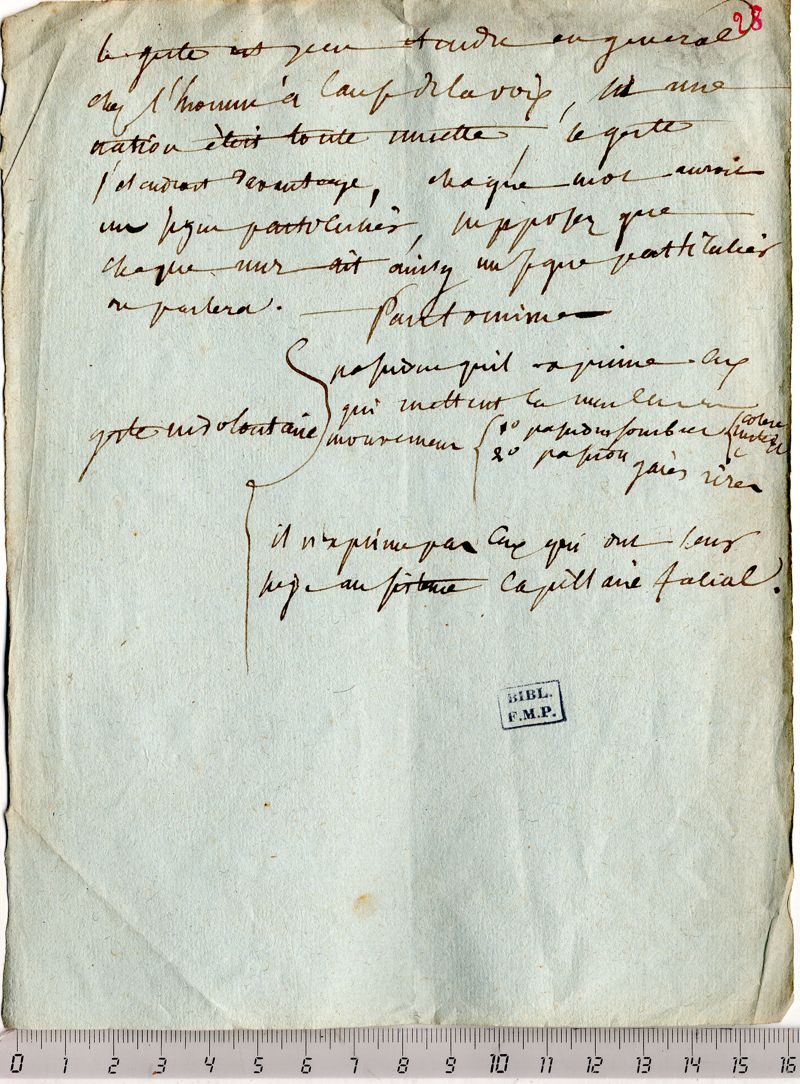 28
le geste est peu etendu en general
chez l'homme à cause de la voix, si une
nation étoit toute muette, le geste
s'etendroit davantage, chaque mot auroit
un signe particulier, supposez que
chaque mur ait ainsy un signe particulier
on parlera. — Pantomime
passion qu'il exprime ceux
qui mettent les muscles en
geste involontaire mouvement 1º passions sombres colere
2º passion gaies rire
il n'exprime pas ceux qui ont leur
siege au sisteme capillaire facial.
BIBL.
F.M.P.
0 1 2 3 4 5 6 7 8 9 10 11 12 13 14 15 16